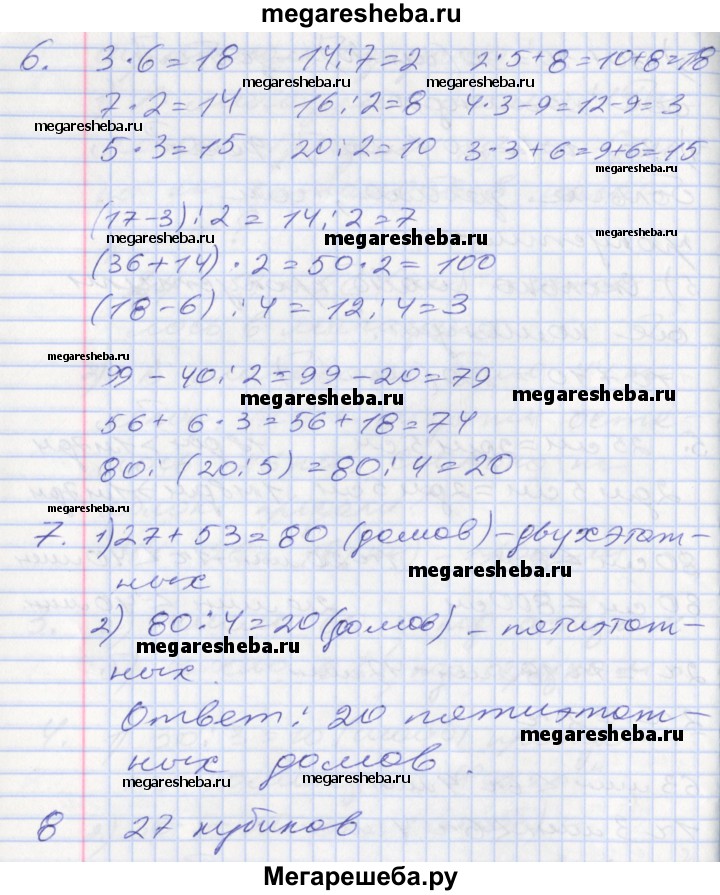 megaresheba.ru
6. 3·6=18 14:7=2 2·5+8=10+8=18
megaresheba.ru megaresheba.ru
7·2=14 16:2=8 4·3-9=12-9=3
megaresheba.ru
5·3=15 20:2=10 3·3+6=9+6=15
megaresheba.ru
(17-3):2=14:2=7
megaresheba.ru megaresheba.ru megaresheba.ru
(36+14)·2=50·2=100
(18-6):4=12:4=3
megaresheba.ru
99-40:2=99-20=79
megaresheba.ru megaresheba.ru
56+6·3=56+18=74
80:(20:5)=80:4=20
megaresheba.ru
7. 1) 27+53=80 (домов) - двухэтаж-
ных
megaresheba.ru
2) 80:4=20 (домов) - пятиэтаж-
megaresheba.ru
ных.
Ответ: 20 пятиэтаж-
megaresheba.ru
ных домов.
megaresheba.ru megaresheba.ru
8 27 кубиков
Мегарешеба.ру